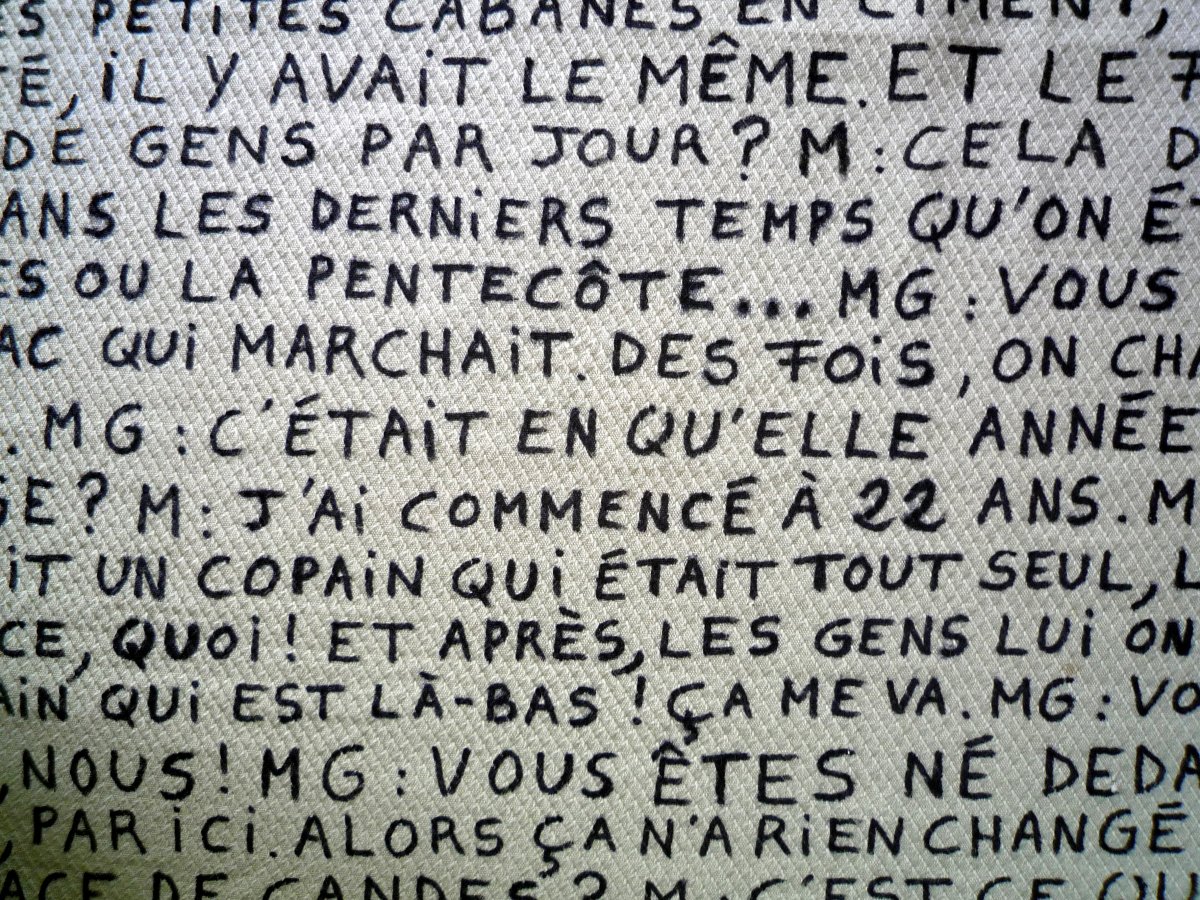 PETITES CABANES EN CIMENT,
TÉ, iL Y AVAiT LE MÊME. ET LE
DE GENS PAR JOUR ? M : CELA D
ANS LES DERNiERS TEMPS QU'ON ÉT
ES OU LA PENTECÔTE... MG : VOUS
AC QUi MARCHAiT. DES FOiS, ON CHA
. MG : C'ÉTAiT EN QU'ELLE ANNÉE
GE ? M : J'Ai COMMENCÉ À 22 ANS. M
iT UN COPAiN QUi ÉTAiT TOUT SEUL, L
CE, QUOi ! ET APRÈS, LES GENS LUi ON
AiN QUi EST LÀ-BAS ! ÇA ME VA. MG : VO
, NOUS ! MG : VOUS ÊTES NÉ DEDA
, PAR iCi. ALORS ÇA N'A RiEN CHANGÉ
ACE DE CANDES ? M : C'EST CE QU